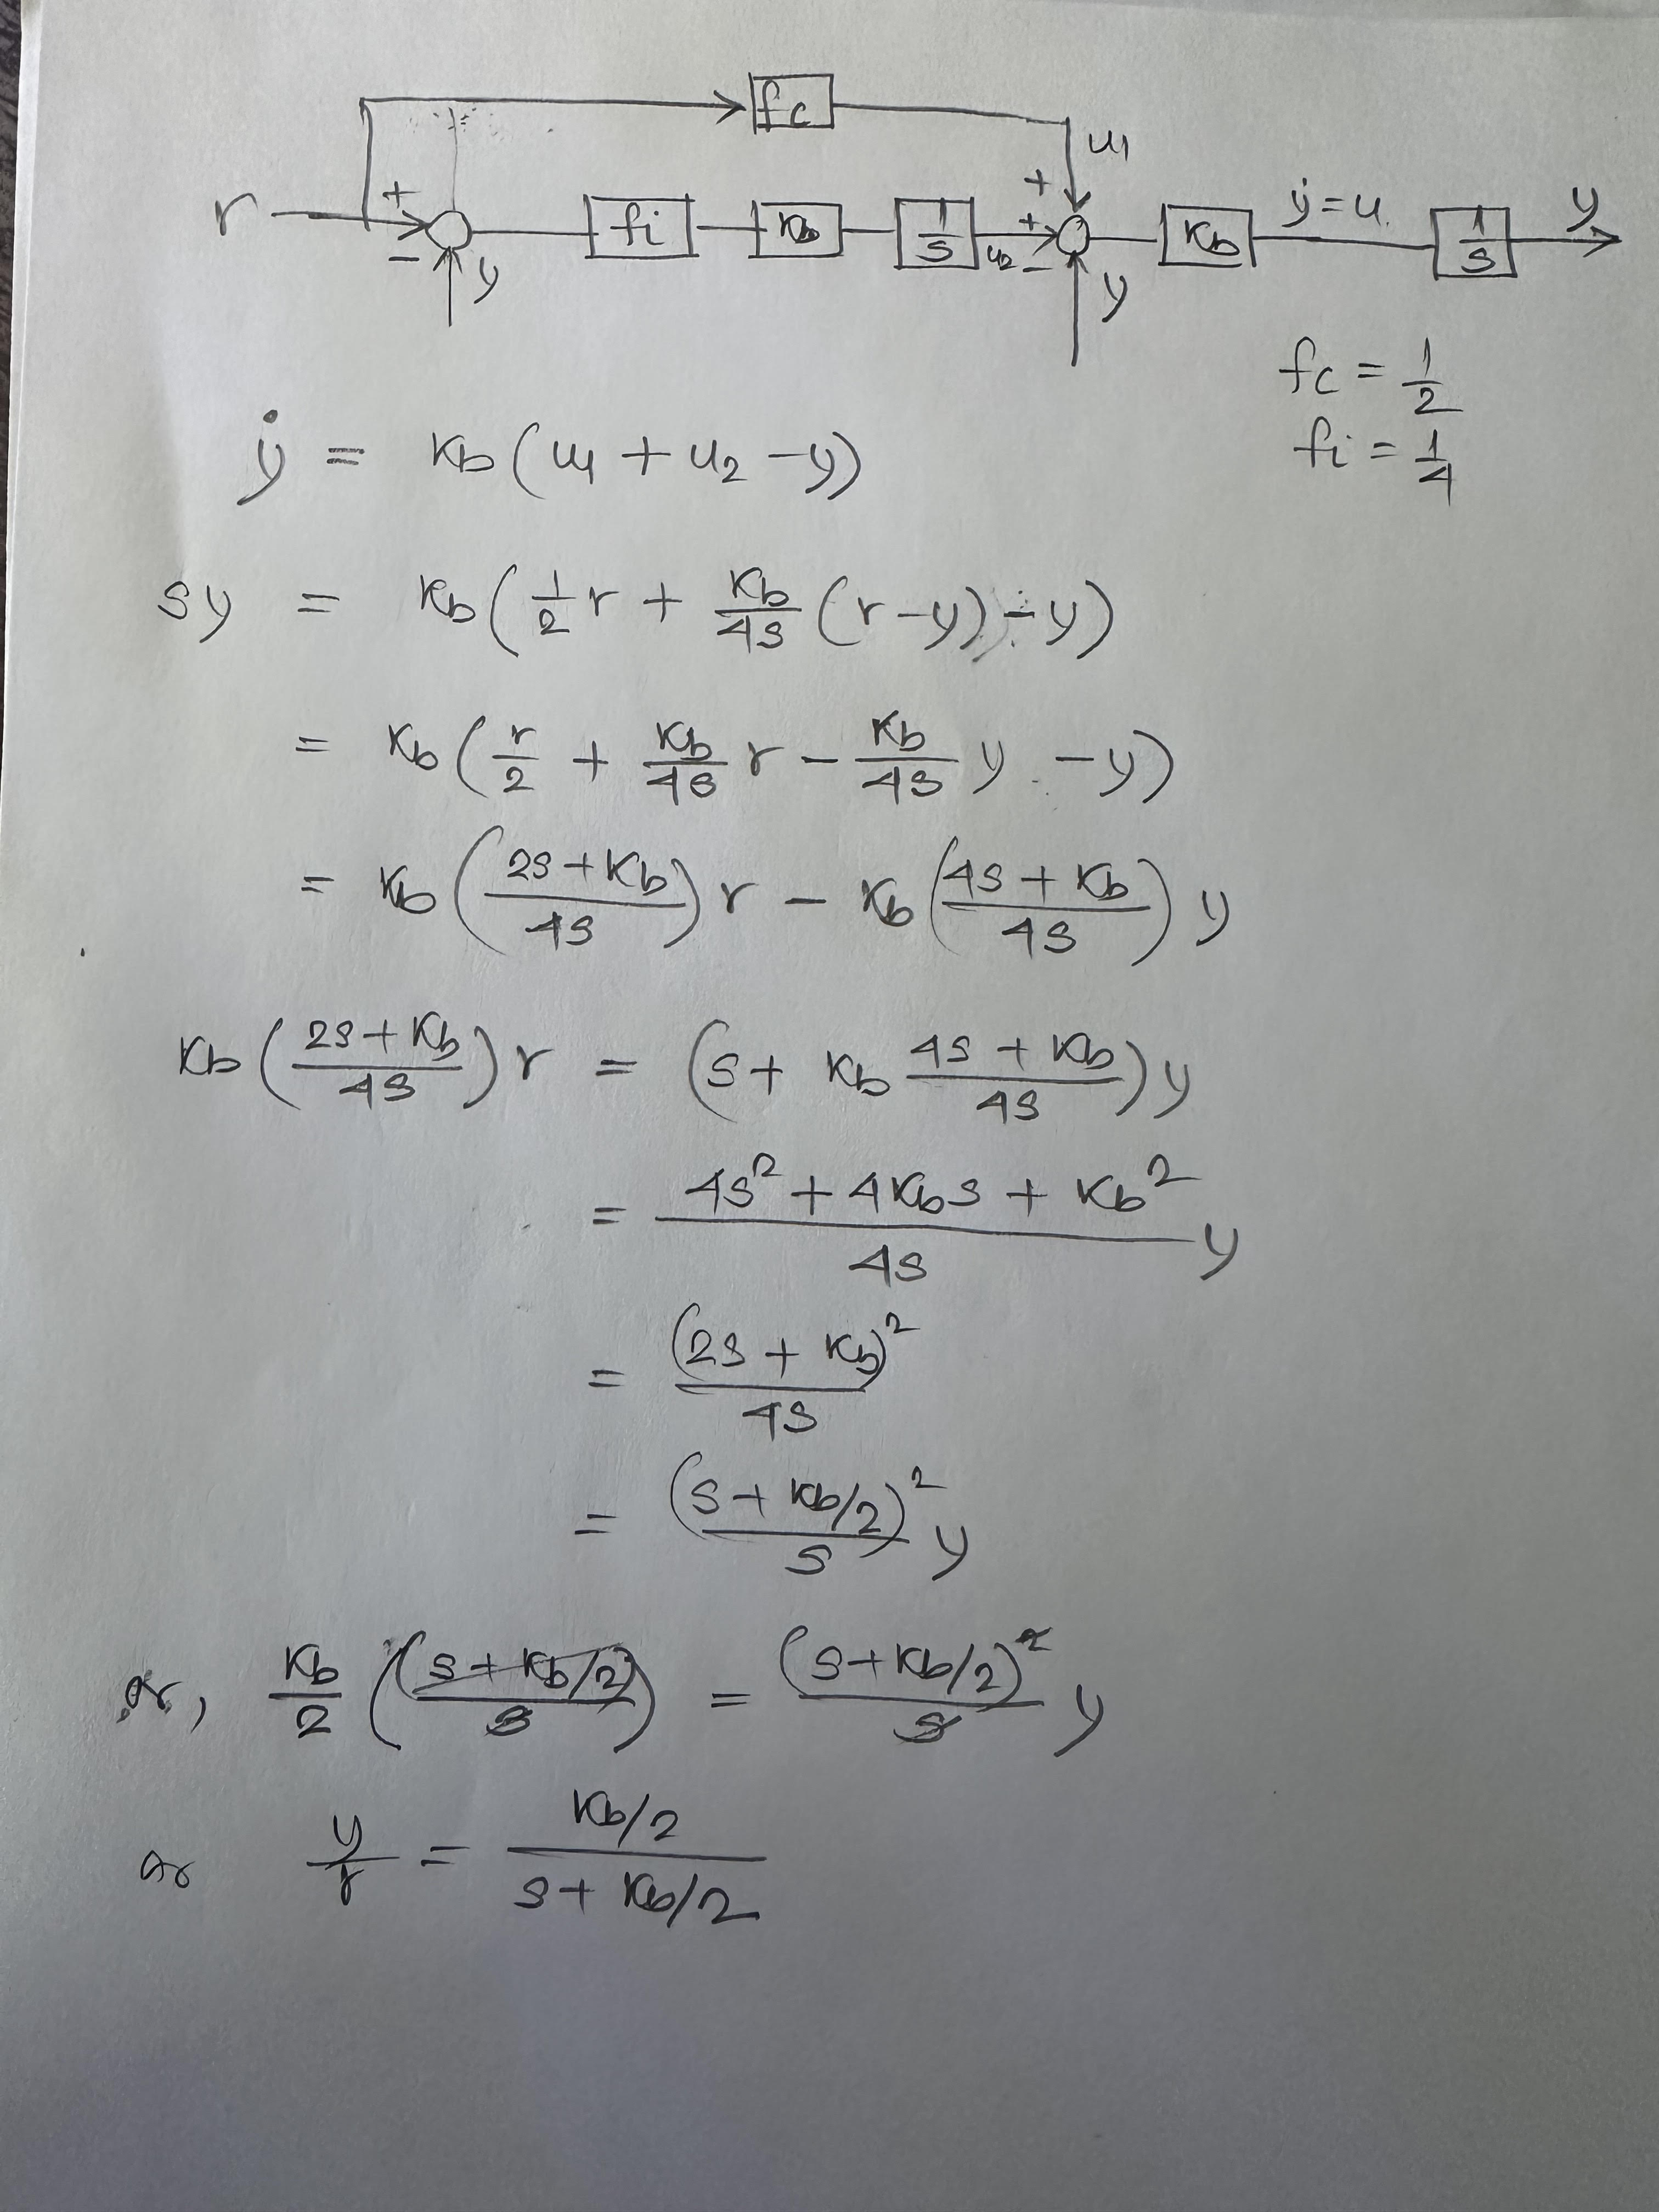 fc
u1
r + - y fi Kb 1/s u2 + + - y Kb ẏ=u 1/s y
fc = 1/2
fi = 1/4
ẏ = Kb(u1 + u2 - y)
sy = Kb(1/2 r + Kb/4s (r-y) - y)
= Kb(r/2 + Kb/4s r - Kb/4s y - y)
= Kb((2s+Kb)/4s) r - Kb((4s+Kb)/4s) y
Kb((2s+Kb)/4s) r = (s + Kb (4s+Kb)/4s) y
= (4s² + 4Kbs + Kb²)/4s y
= (2s + Kb)²/4s
= (s + Kb/2)²/s y
or, Kb/2 ((s+Kb/2)/s) = (s+Kb/2)²/s y
or y/r = (Kb/2)/(s+Kb/2)